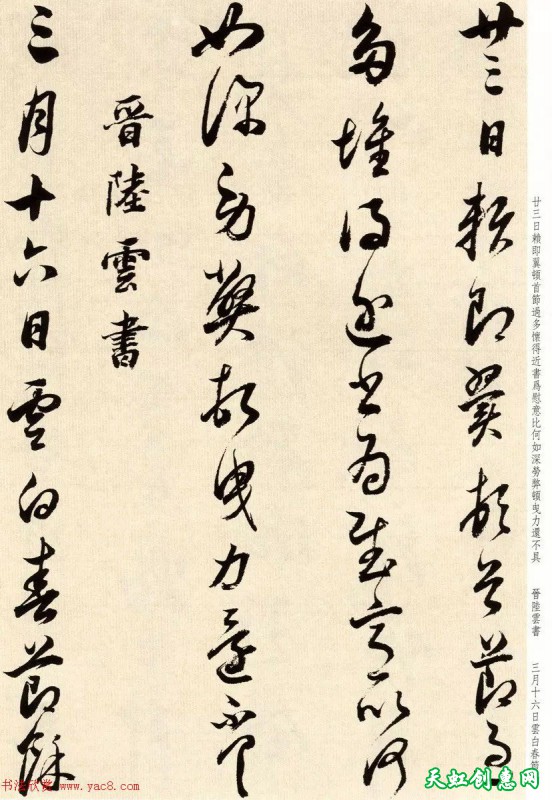 廿三日賴即冀頓首節過多懷得近書爲慰意比何如深勞弊頓曳力還不具 晉陸雲書 三月十六日雲白春節
廿三日賴即冀頓首節過
多懷得近書為慰意比何
如深勞弊頓曳力還不具
晉陸雲書
三月十六日雲白春節餘
书法欣赏 www.yac8.com
天虹创意网